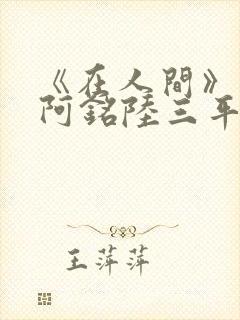 《在人間》
阿銘陸三平
王萍萍